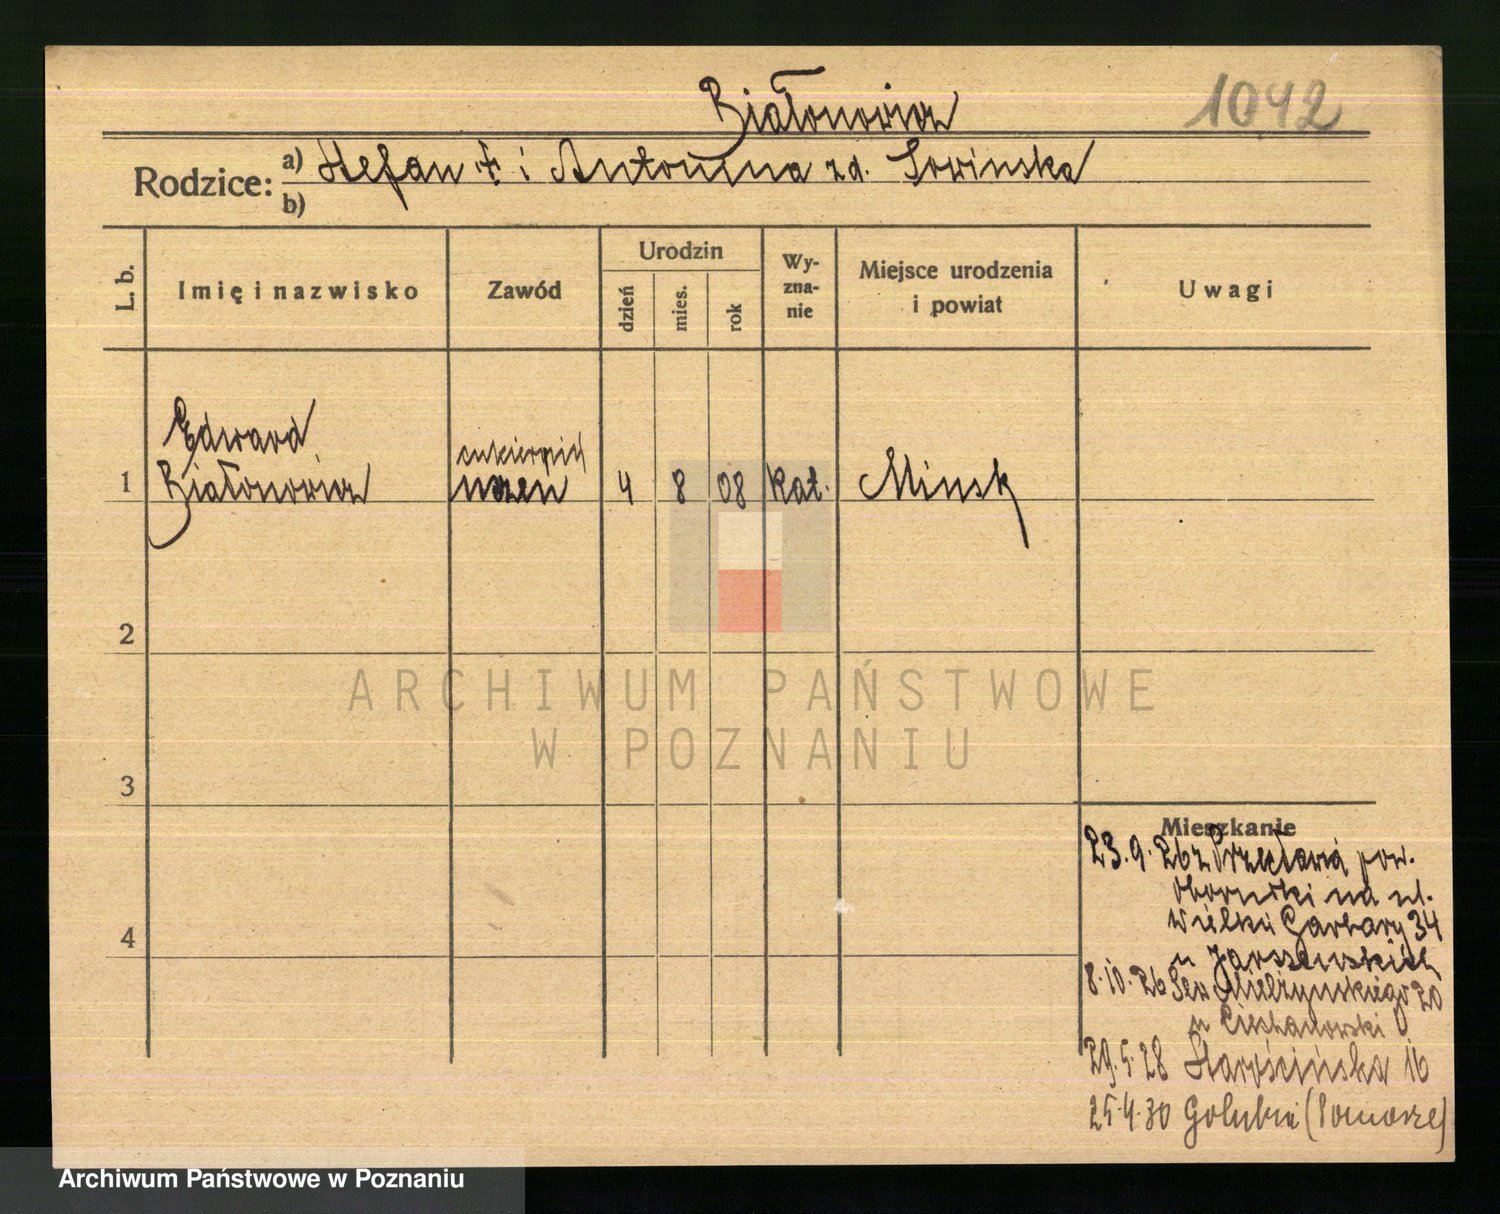 Białonowicz
1042
Rodzice: a) Stefan † i Antonina zd. Sowinska
b)
L. b.
Imię i nazwisko
Zawód
Urodzin
dzień
mies.
rok
Wy-
zna-
nie
Miejsce urodzenia
i powiat
Uwagi
Edward
cukierniczy
1 Białonowicz uczen 4 8 08 kat. Minsk
2
ARCHIWUM PAŃSTWOWE
W POZNANIU
3
Mieszkanie
23.9.26 z pow.
obornicki na ul.
Wielkie Garbary 34
u Jarszewskich
8.10.26 Sew. Mielżynskiego 20
u Ciechanowski
29.5.28 Starościńska 16
4
25.4.30 (Pomorze)
Archiwum Państwowe w Poznaniu